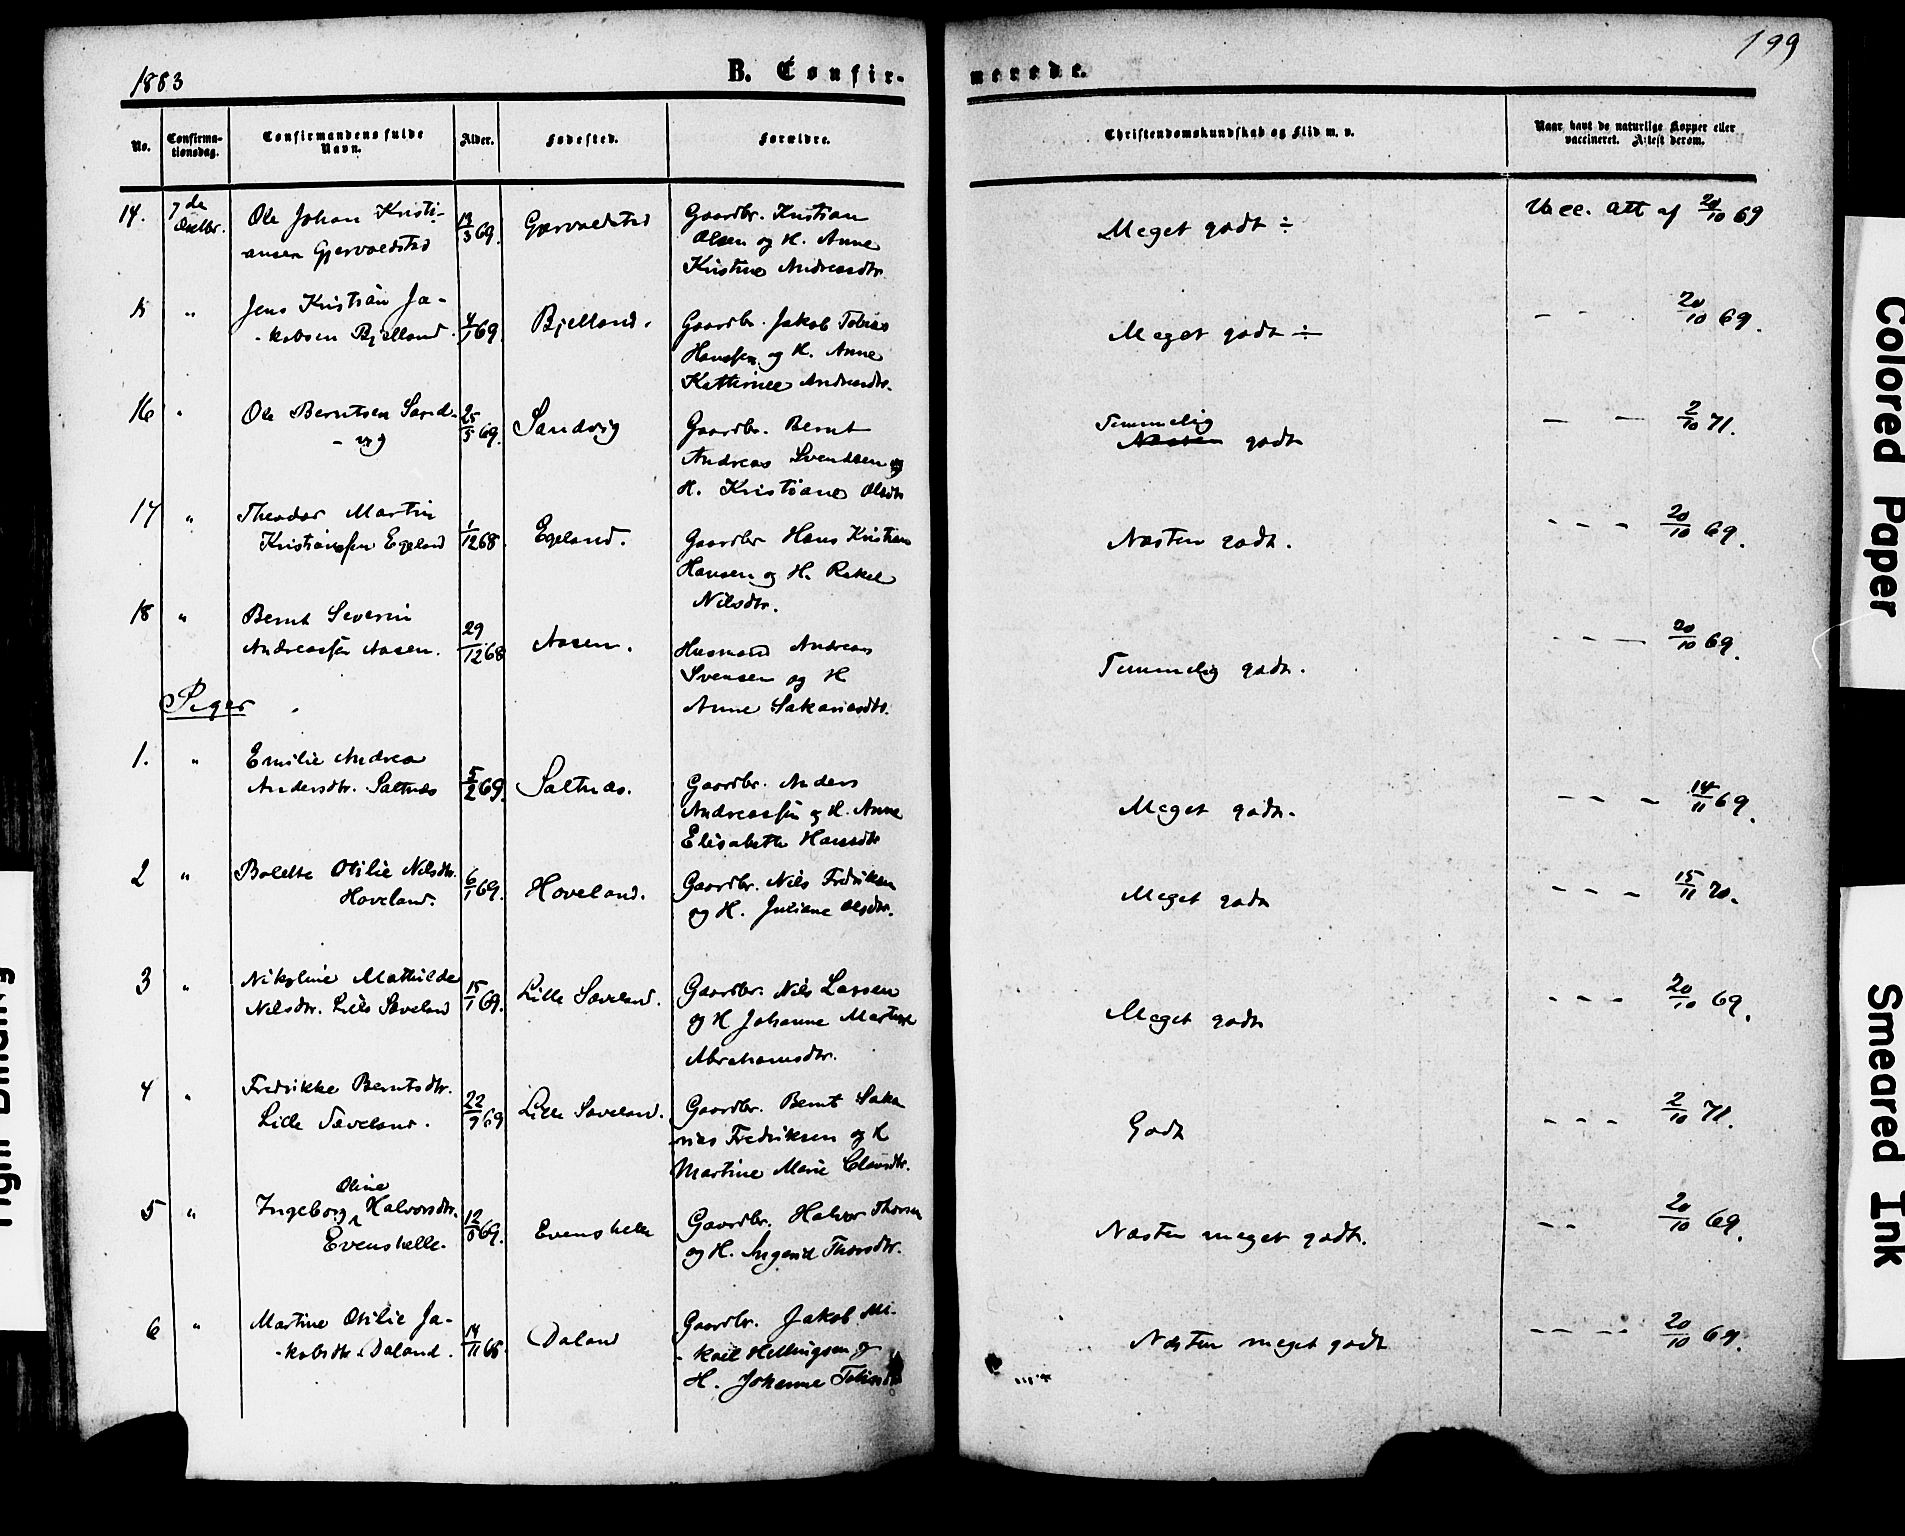 1883
B. Confir-
merede.
199
No.
Confirma-
tionsdag.
Confirmandens fulde
Navn.
Alder.
Fødested.
Forældre.
Christendomskundskab og Flid m. v.
Naar havt de naturlige Kopper eller
vaccineret. Attest derom.
14. 7de Ole Johan Kristi- 13/3 69. Gjærvoldstad Gaardbr. Kristian Meget godt ÷ Vacc. att af 20/10 69
Octbr. ansen Gjervoldstad Olsen og H. Anne
Kristine Andreasdtr.
15 " Jens Kristian Ja- 4/1 69. Bjelland. Gaardbr. Jakob Tobias Meget godt ÷ - - 20/10 69.
- kobsen Bjelland. Hansen og H. Anne
Kathrine Andreasdtr.
16 " Ole Berntsen Sand- 25/5 69. Sandvig Gaardbr. Bernt Temmelig — — 2/10 71.
- vig Andreas Svendsen og Næsten godt
H. Kristiane Olsdtr
17 " Theodor Martin 1/12 68. Egeland. Gaardbr Hans Kristian Næsten godt. - - - 20/10 69.
Kristiansen Egeland Hansen og H. Rakel
Nilsdtr.
18 " Bernt Severin 29/12 68 Aasen. Husmand Andreas Temmelig godt. - - — 20/10 69.
Andreassen Aasen. Svensen og H
Anne Sakariasdtr.
Piger
1. " Emilie Andrea 5/2 69. Saltnæs. Gaardbr. Anders Meget godt. - - - 14/11 69.
Andersdtr. Saltnæs Andreassen og H. Anne
Elisabeth Hansdtr
2 " Bolette Otilie Nilsdtr. 6/1 69. Hoveland. Gaardbr. Nils Fredriksen Meget godt - - - 15/11 70.
Hoveland. og H. Juliane Olsdtr.
3 " Nikoline Mathilde 15/1 69. Lille Sæveland. Gaardbr. Nils Larsen Meget godt - - - 20/10 69.
Nilsdtr. Lille Sæveland og H Johanne Martine
Abrahamsdtr.
4 " Fredrikke Berntsdtr. 22/7 69 Lille Sæveland. Gaardbr. Bernt Saka Godt - - - 2/10 71.
Lille Sæveland. rias Fredriksen og H
Martine Marie Clausdtr.
Oline
5 " Ingeborg Halvorsdtr. 12/5 69. Evenshelle Gaardbr. Halvor Thorsen Næsten meget godt. - - 20/10 69.
Evenshelle. og H. Ingerid Thorsdtr.
6 " Martine Otilie Ja- 14/11 68. Daland Gaardbr. Jakob Mi- Næsten meget godt -- -- 20/10 69.
- kobsdtr. Daland. - kail Hellingsen og
H. Johanne Tobiasdtr
Colored Paper
Smeared Ink